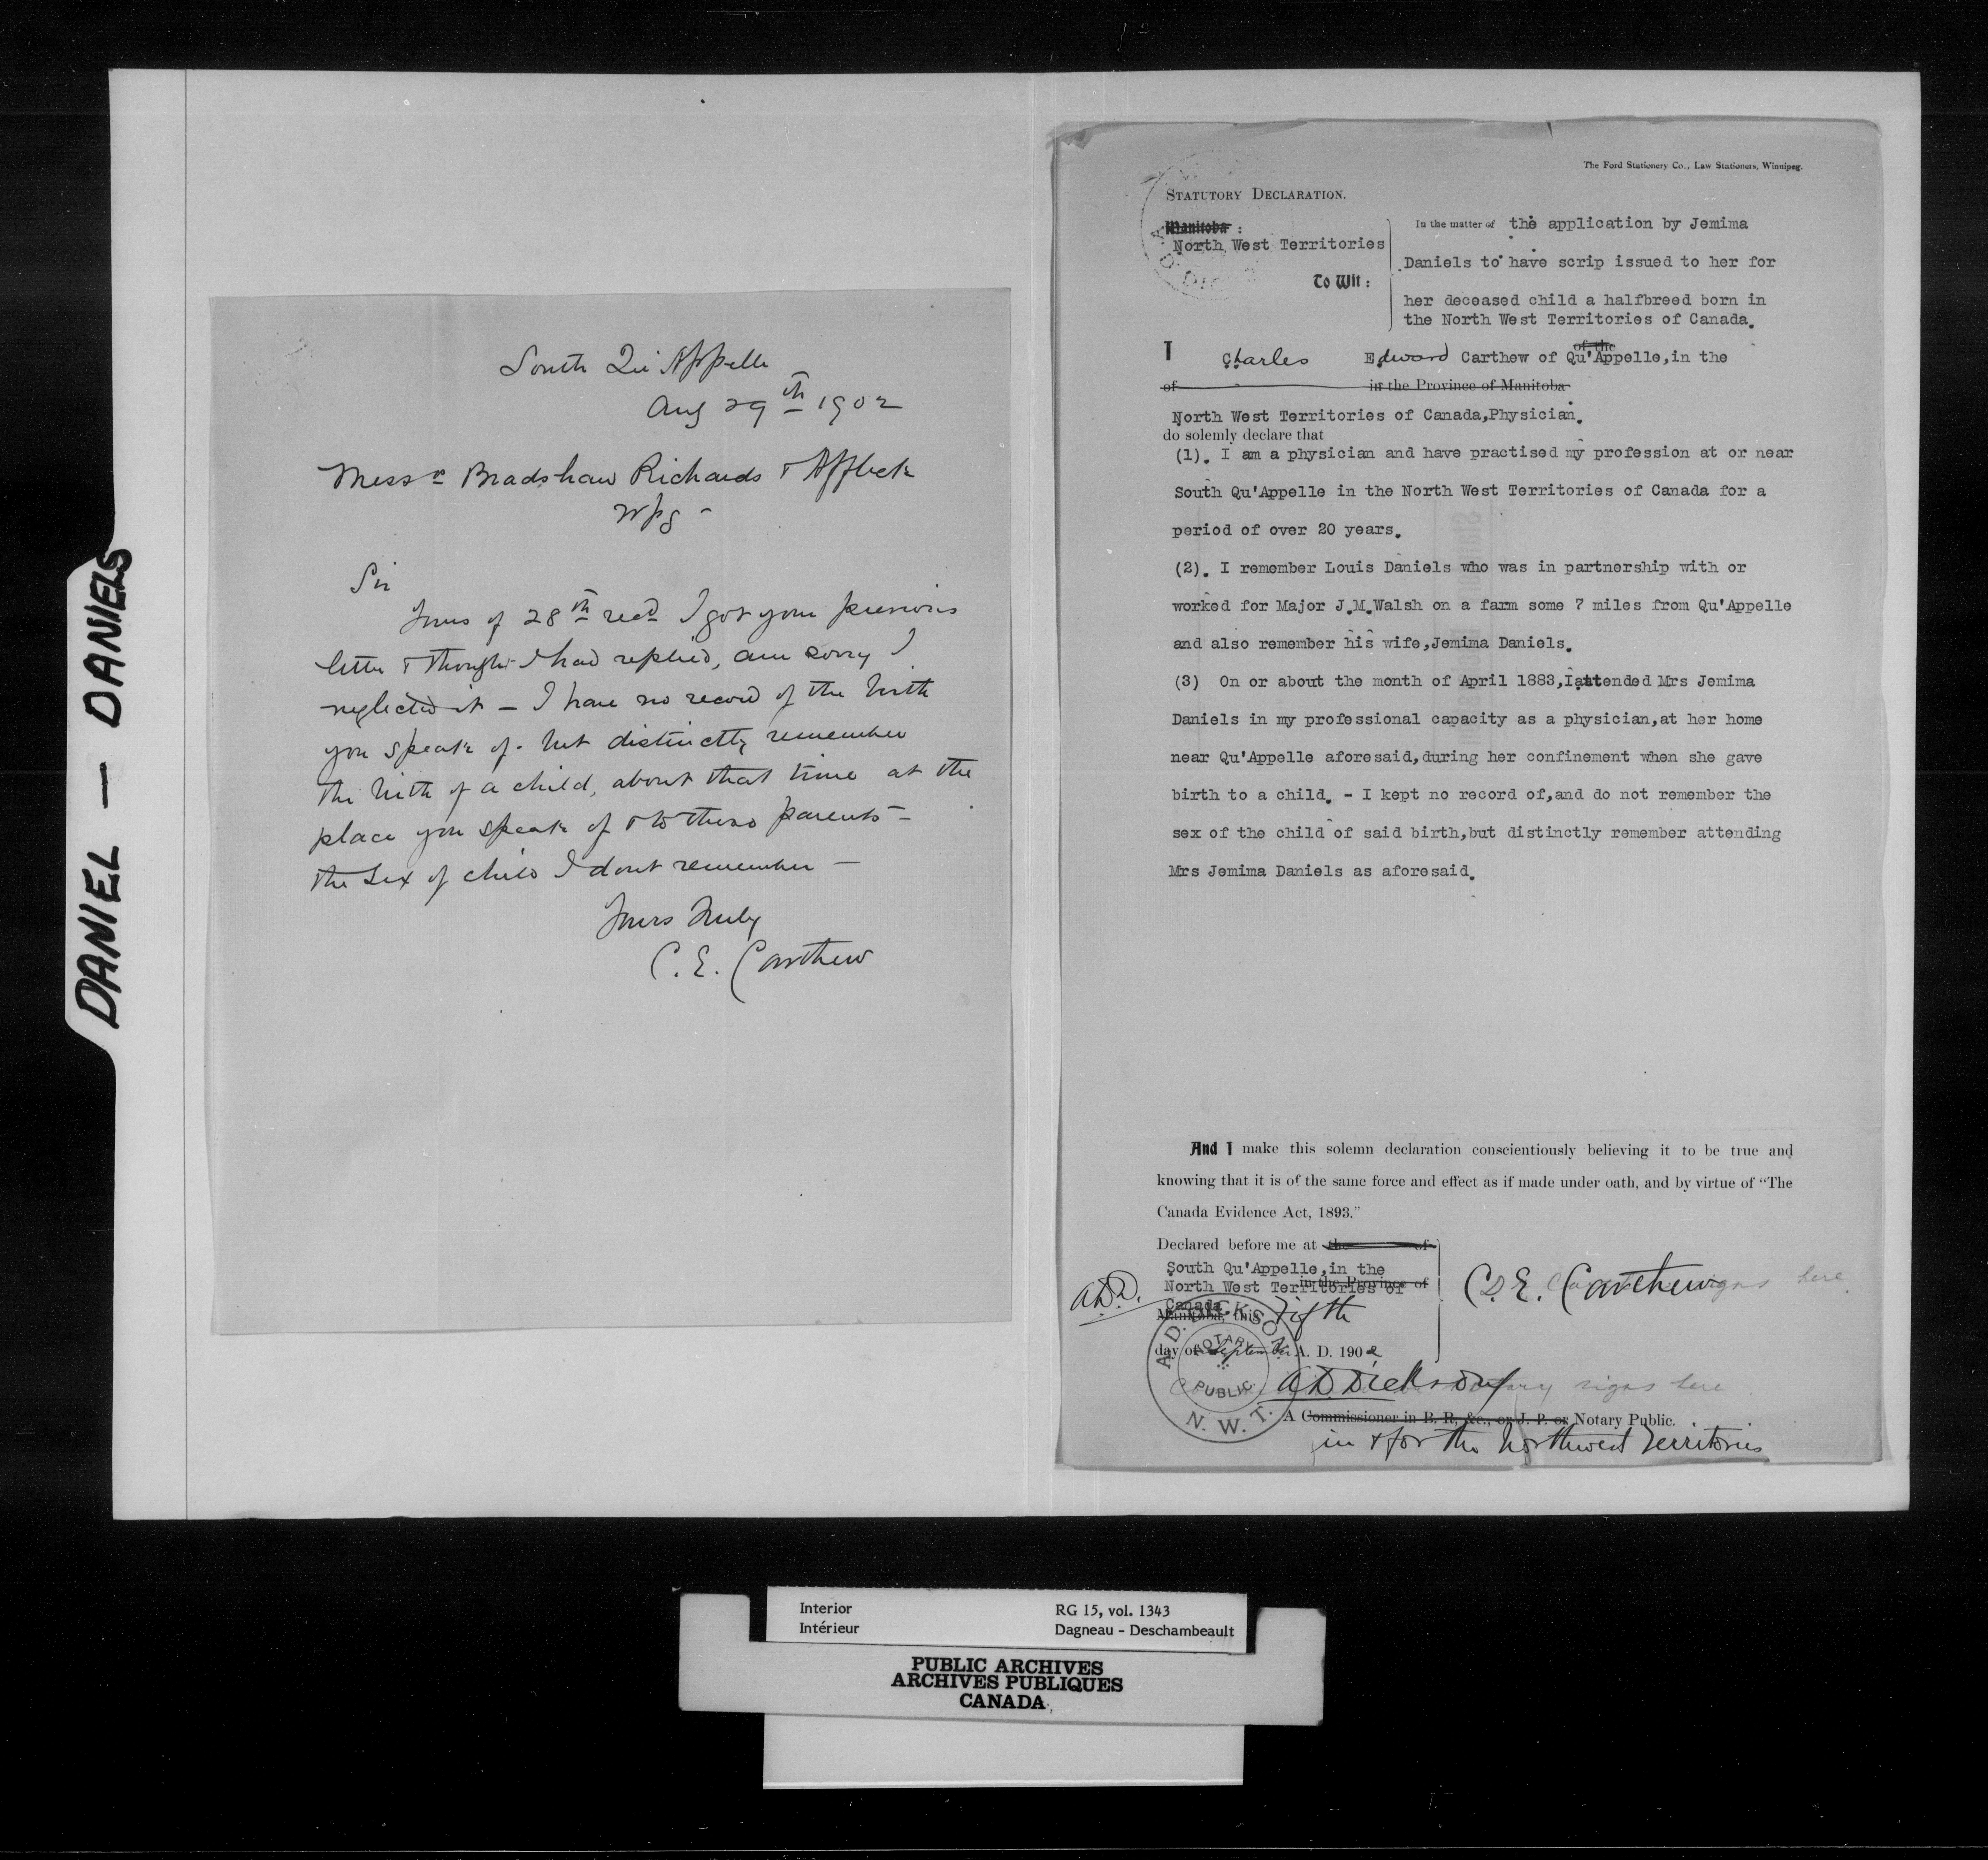 DANIEL — DANIELS
South Qu'Appelle
Aug 29th 1902
Messrs Bradshaw Richards & Affleck
Wpg -
Sir
Yours of 28th recd I got your previous
letter & thought I had replied, am sorry I
neglected it — I have no record of the birth
you speak of - but distinctly remember
the birth of a child, about that time at the
place you speak of & to those parents —
the sex of child I dont remember —
Yours truly
C. E. Carthew
The Ford Stationery Co., Law Stationers, Winnipeg.
STATUTORY DECLARATION.
Manitoba :
North West Territories
To Wit :
In the matter of the application by Jemima
Daniels to have scrip issued to her for
her deceased child a halfbreed born in
the North West Territories of Canada.
of the
I Charles Edward Carthew of Qu'Appelle,in the
of in the Province of Manitoba
North West Territories of Canada,Physician.
do solemnly declare that
(1). I am a physician and have practised my profession at or near
South Qu'Appelle in the North West Territories of Canada for a
period of over 20 years.
(2). I remember Louis Daniels who was in partnership with or
worked for Major J.M.Walsh on a farm some 7 miles from Qu'Appelle
and also remember his wife,Jemima Daniels.
(3) On or about the month of April 1883,I attended Mrs Jemima
Daniels in my professional capacity as a physician,at her home
near Qu'Appelle aforesaid,during her confinement when she gave
birth to a child. - I kept no record of,and do not remember the
sex of the child of said birth,but distinctly remember attending
Mrs Jemima Daniels as aforesaid.
And I make this solemn declaration conscientiously believing it to be true and
knowing that it is of the same force and effect as if made under oath, and by virtue of "The
Canada Evidence Act, 1893."
Declared before me at the of
South Qu'Appelle,in the
in the Province of
North West Territories of
Canada
Manitoba, this Fifth
day of September A. D. 1902
A.D.D.
C. E. Carthew
signs here
A. D. DICKSON
NOTARY PUBLIC.
N. W. T.
A D Dickson
Notary signs here
A Commissioner in B. R, &c., or J. P. or Notary Public.
in & for the Northwest Territories
Interior
Intérieur
RG 15, vol. 1343
Dagneau - Deschambeault
PUBLIC ARCHIVES
ARCHIVES PUBLIQUES
CANADA